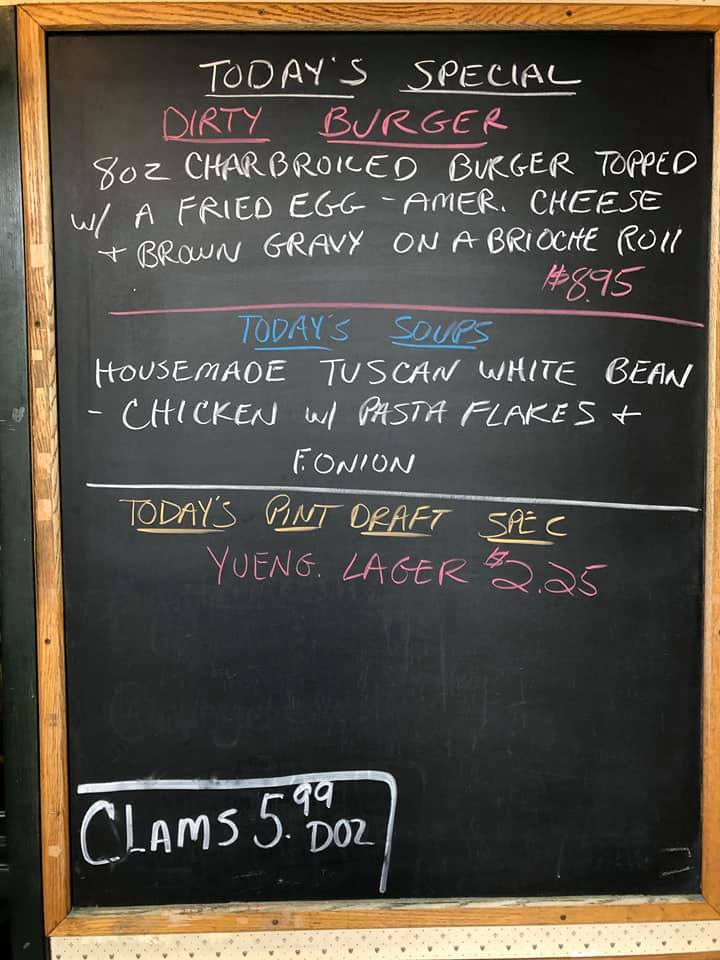 TODAY'S SPECIAL
DIRTY BURGER
8OZ CHARBROILED BURGER TOPPED
W/ A FRIED EGG - AMER. CHEESE
+ BROWN GRAVY ON A BRIOCHE ROll
$8.95
TODAY'S SOUPS
HOUSEMADE TUSCAN WHITE BEAN
- CHICKEN W/ PASTA FLAKES +
F.ONION
TODAY'S PINT DRAFT SPEC
YUENG. LAGER $2.25
CLAMS 5.99 DOZ